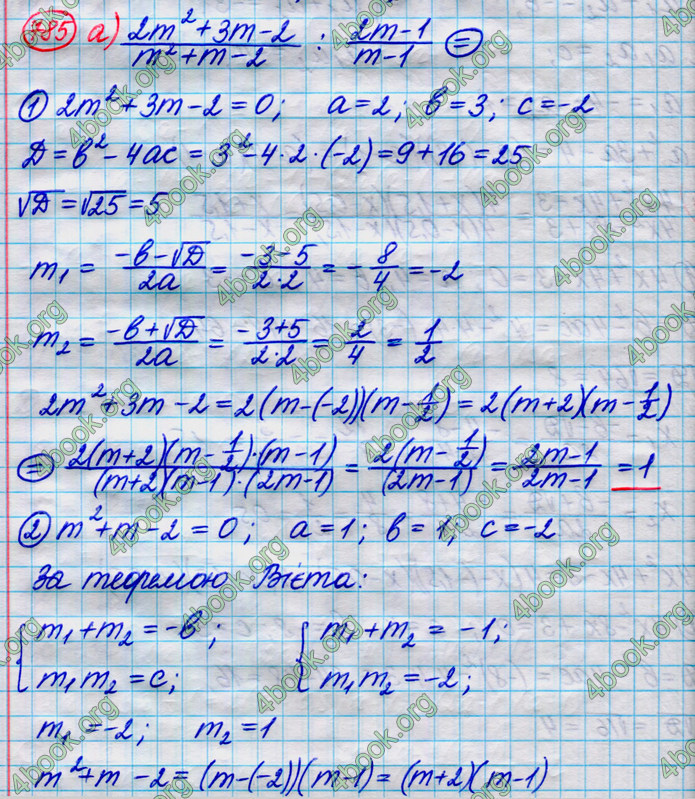 785 а) (2m² + 3m - 2)/(m² + m - 2) : (2m - 1)/(m - 1) ⊜
① 2m² + 3m - 2 = 0; a = 2; b = 3; c = -2
Д = b² - 4ac = 3² - 4 · 2 · (-2) = 9 + 16 = 25
√Д = √25 = 5
m₁ = (-b - √Д)/2a = (-3 - 5)/(2 · 2) = -8/4 = -2
m₂ = (-b + √Д)/2a = (-3 + 5)/(2 · 2) = 2/4 = 1/2
2m² + 3m - 2 = 2(m - (-2))(m - 1/2) = 2(m + 2)(m - 1/2)
⊜ (2(m + 2)(m - 1/2) · (m - 1))/((m + 2)(m - 1) · (2m - 1)) = 2(m - 1/2)/(2m - 1) = (2m - 1)/(2m - 1) = 1
② m² + m - 2 = 0; a = 1; b = 1; c = -2
За теоремою Вієта:
{ m₁ + m₂ = -b; { m₁ + m₂ = -1;
m₁m₂ = c; m₁m₂ = -2;
m₁ = -2; m₂ = 1
m² + m - 2 = (m - (-2))(m - 1) = (m + 2)(m - 1)
4book.org